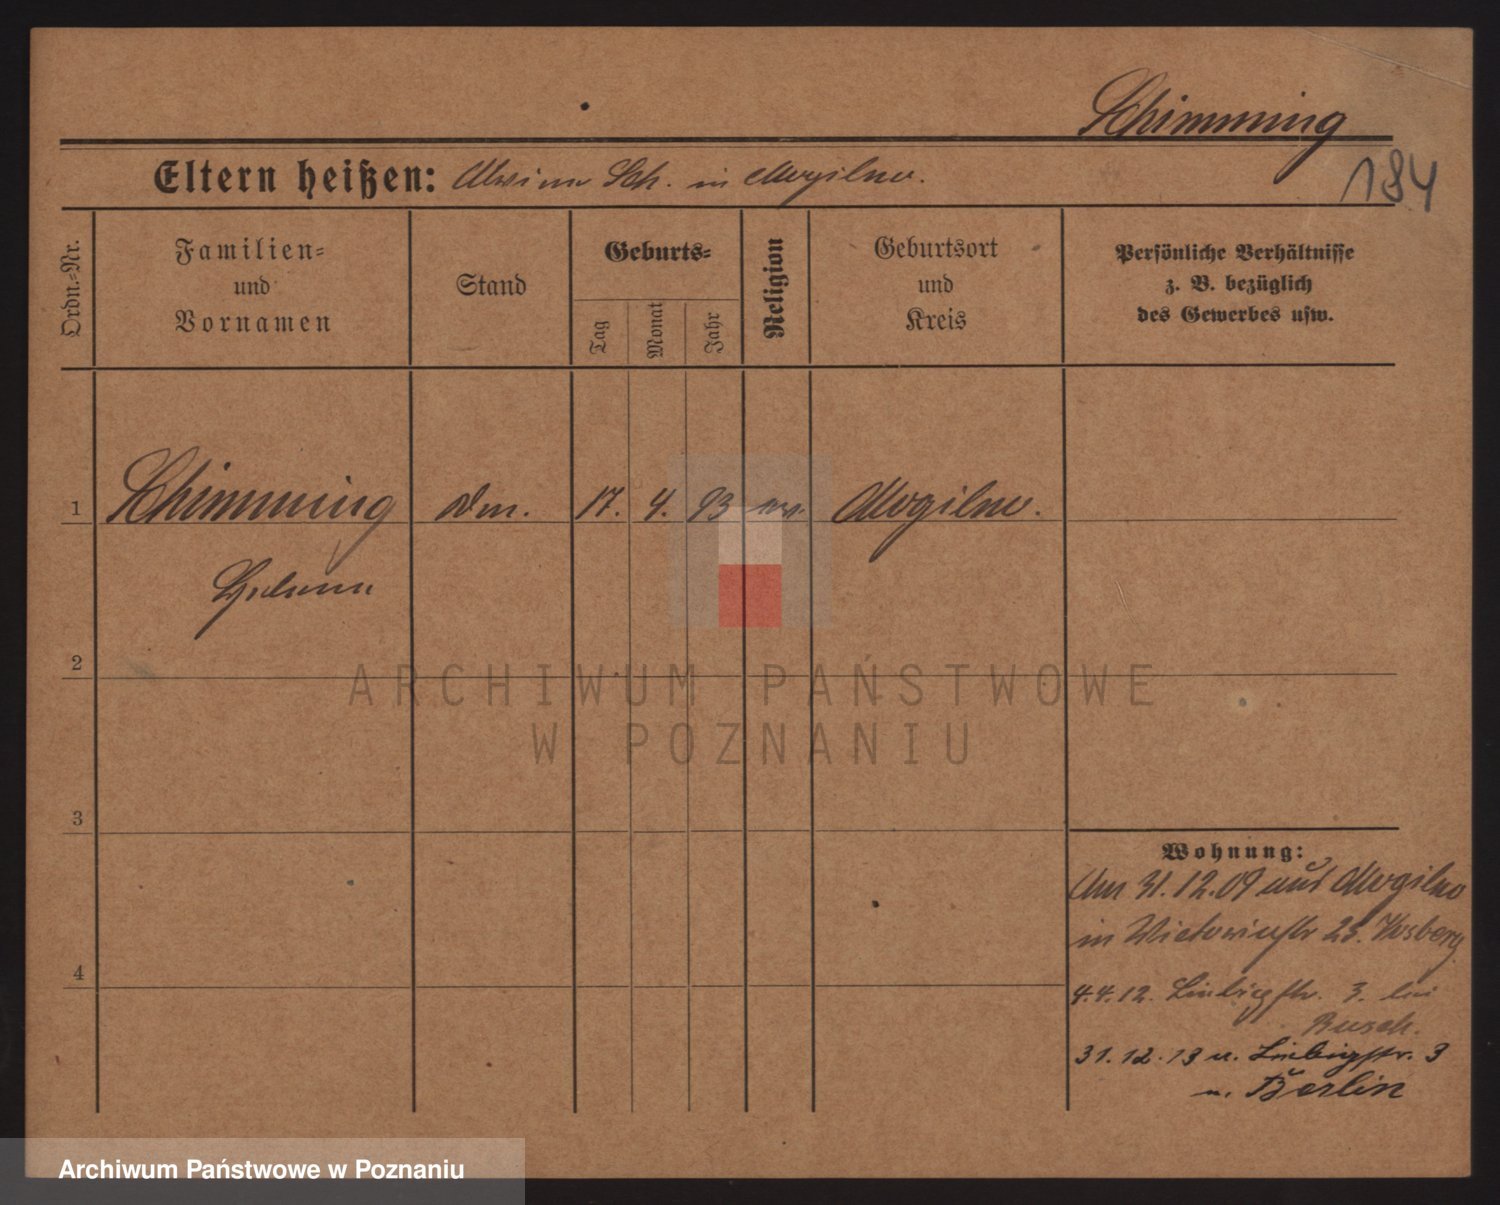 Schimming
184
Eltern heißen: Alwine Sch. in Mogilno.
Ordn.=Nr.
Familien=
und
Vornamen
Stand
Geburts=
Tag
Monat
Jahr
Religion
Geburtsort
und
Kreis
Persönliche Verhältnisse
z. B. bezüglich
des Gewerbes usw.
1 Schimming 17. 4. 93 ev. Mogilno.
2
3
4
ARCHIWUM PAŃSTWOWE
W POZNANIU
Wohnung:
Am 31.12.09 aus Mogilno
in Victoriastr 23.
4.4.12. 3. bei
Busch.
31.12.13 v. 3
n. Berlin
Archiwum Państwowe w Poznaniu